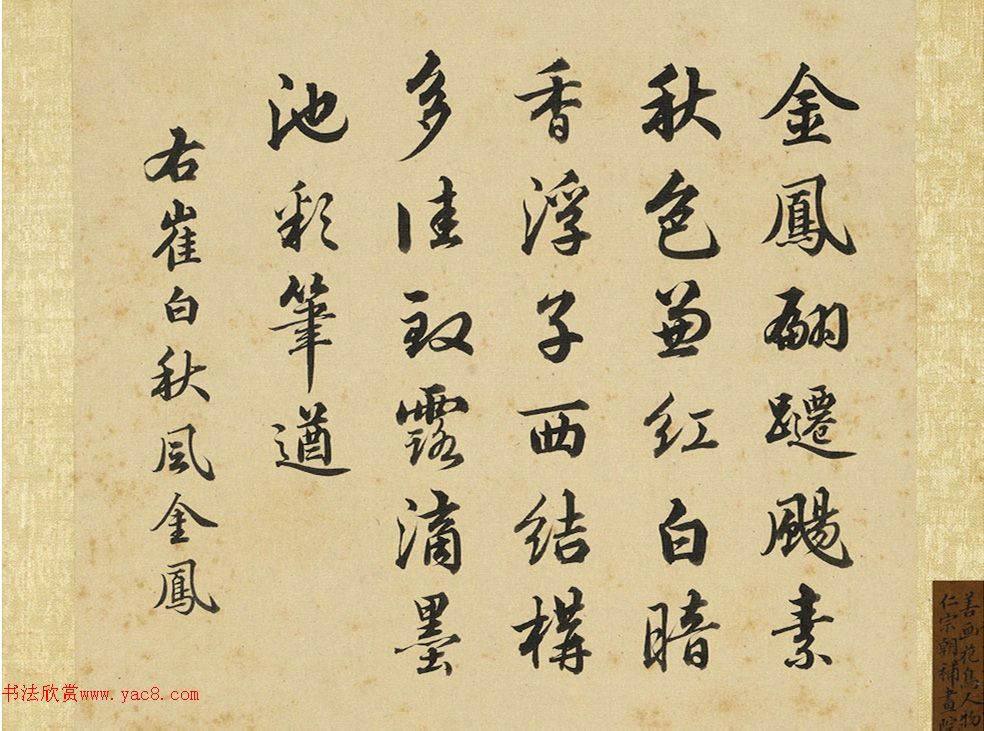 金鳳翩躚颺素
秋色兼紅白暗
香浮子西結構
多佳致露滴墨
池彩筆遒
右崔白秋風金鳳
善画花鳥人物
仁宗朝補畫院
书法欣赏www.yac8.com